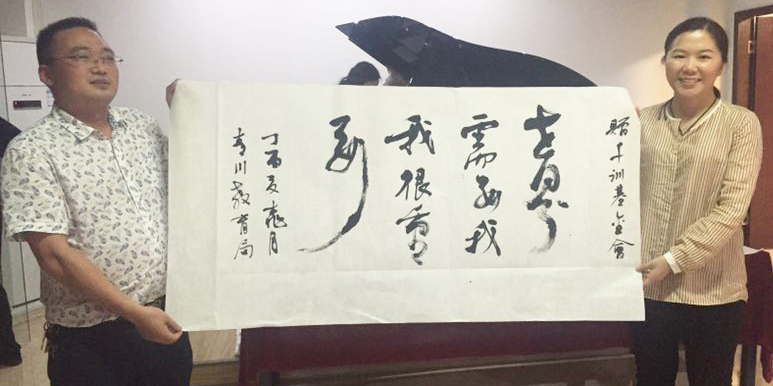 贈千训基金會
世界
需要我
我很重
要
丁酉夏月
青川教育局